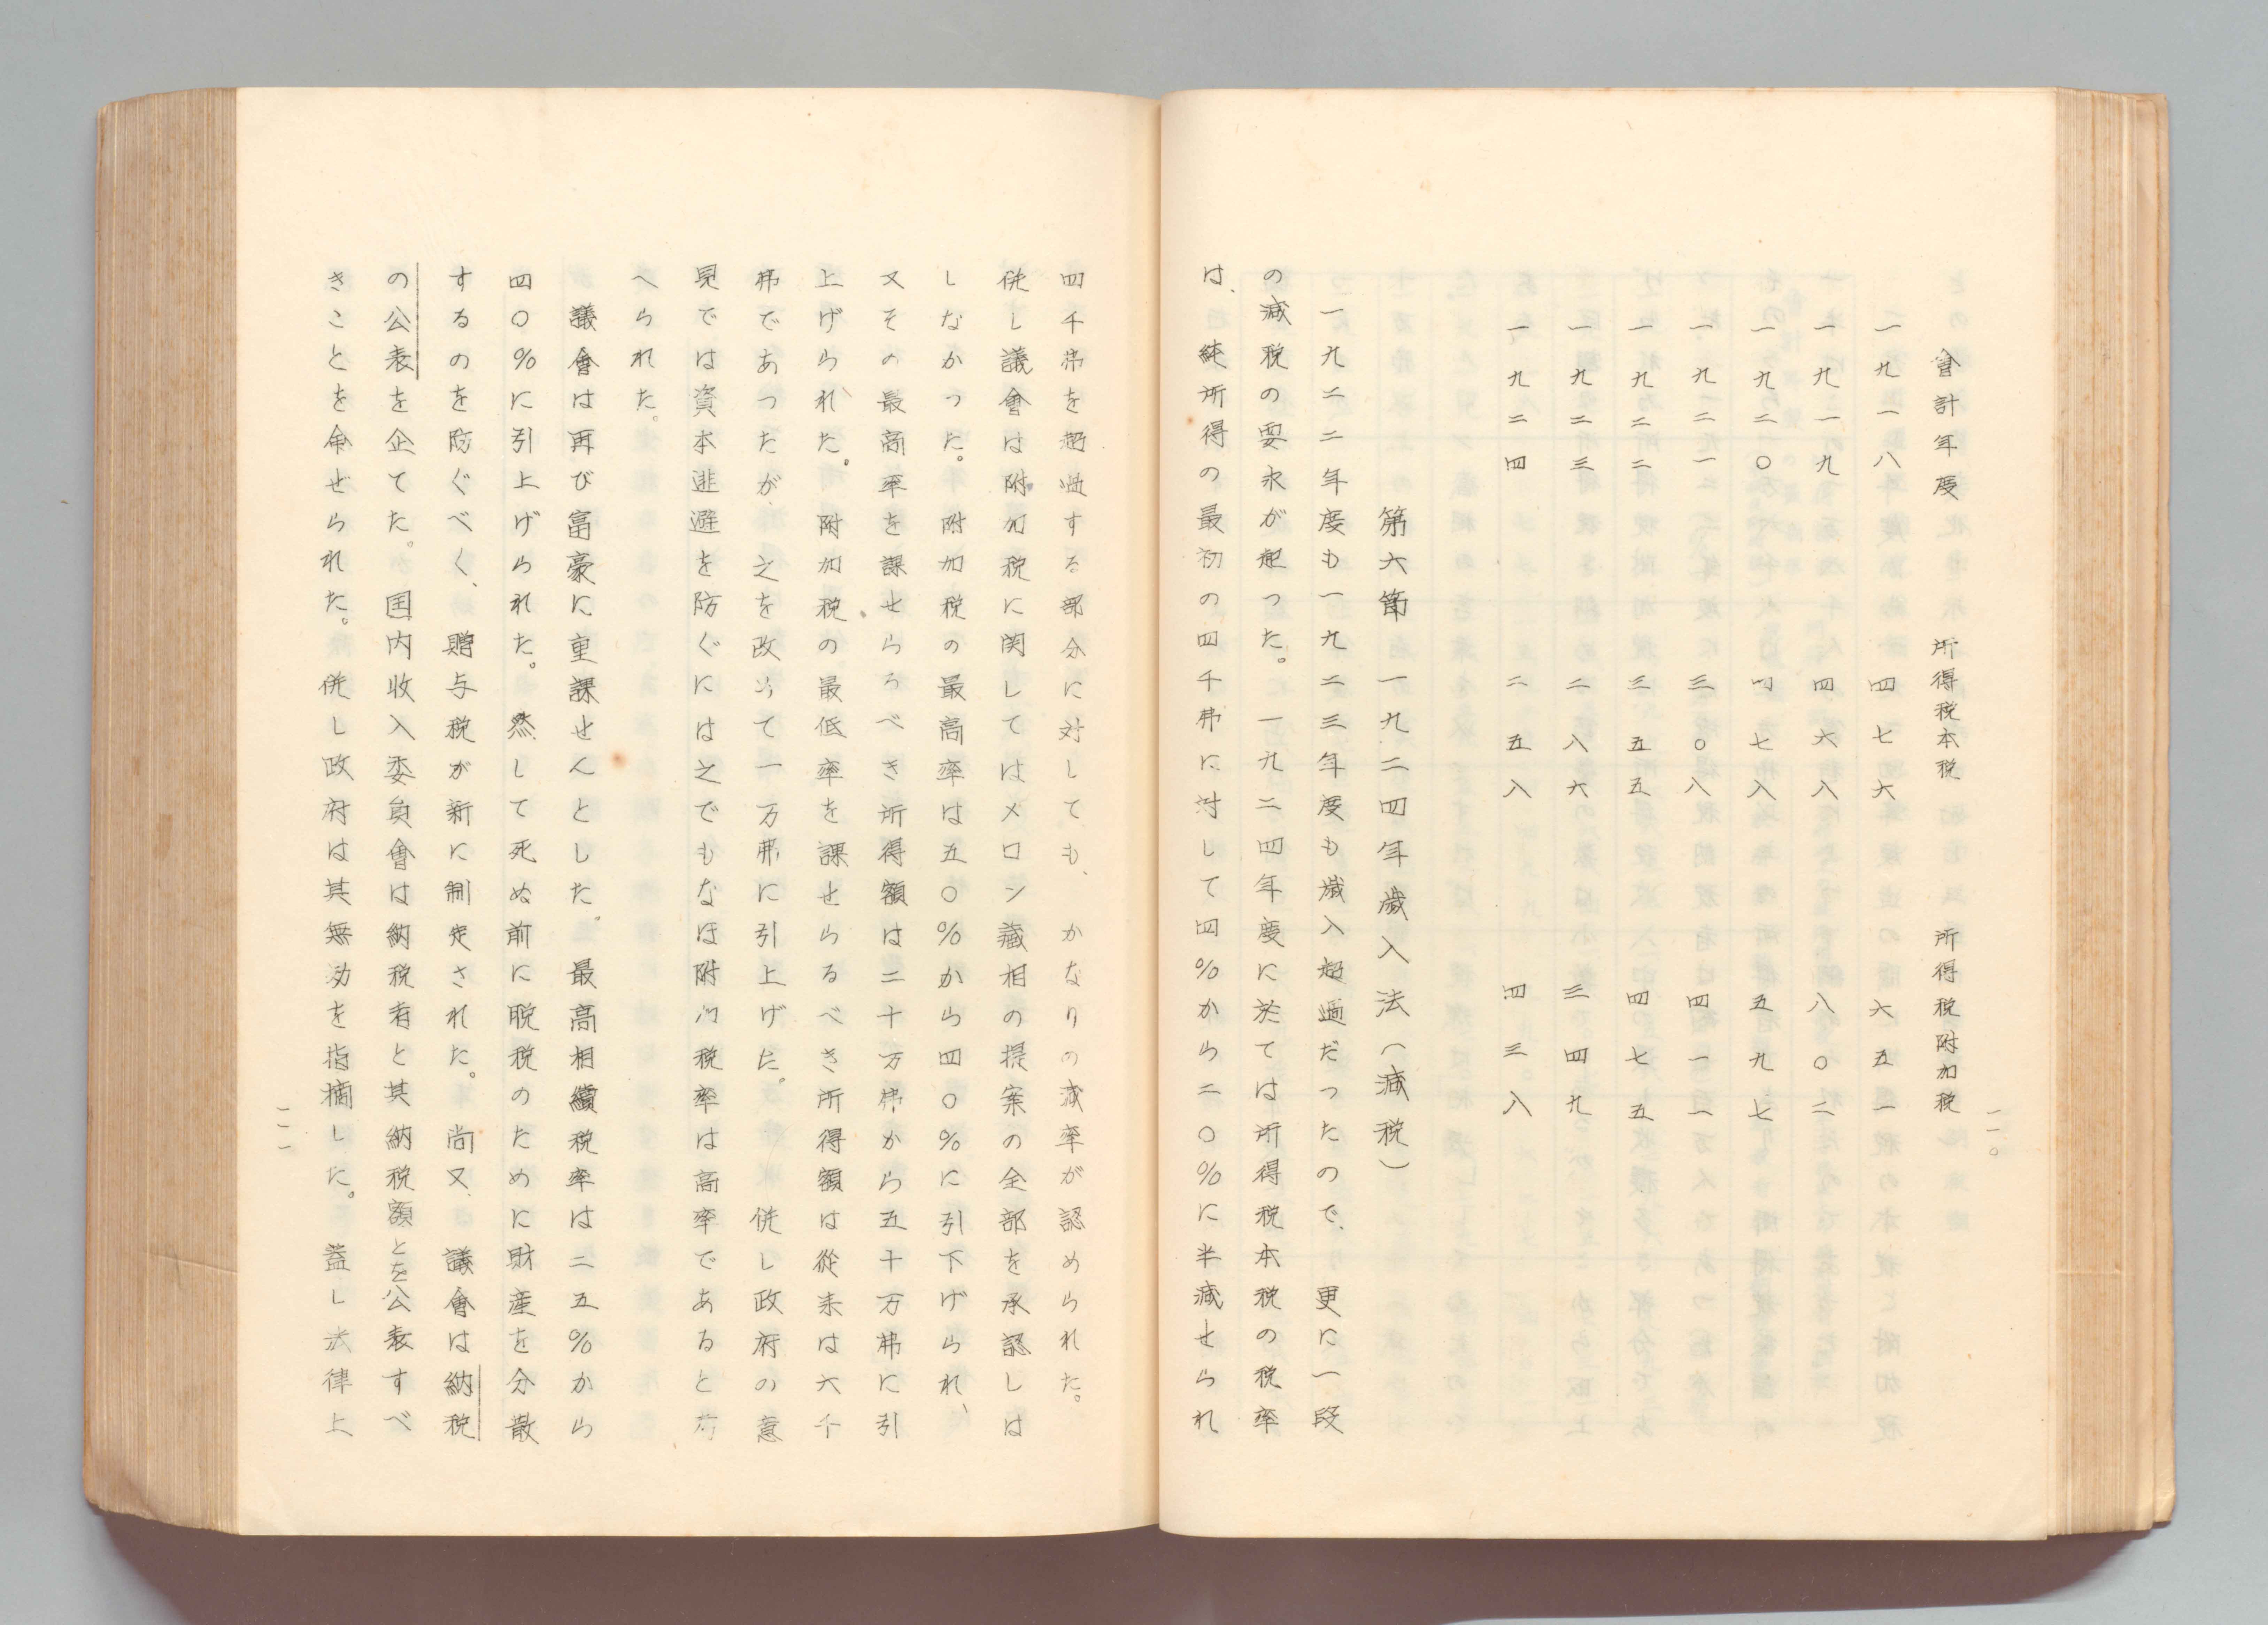 一一〇
會計年度　所得税本税　所得税附加税
一九一八　四七六　六五一
一九一九　四六八　八〇二
一九二〇　四七八　五九七
一九二一　三〇八　四一一
一九二二　三五五　四七五
一九二三　二八六　三四九
一九二四　二五八　四三八
第六節　一九二四年歳入法(減税)
一九二二年度も一九二三年度も歳入超過だつたので、更に一段
の減税の要求が起つた。一九二四年度に於ては所得税本税の税率
は、純所得の最初の四千弗に対して四%から二〇%に半減せられ
四千弗を超過する部分に対しても、かなりの減率が認められた。
併し議會は附加税に関してはメロン蔵相の提案の全部を承認しは
しなかつた。附加税の最高率は五〇%から四〇%に引下げられ、
又その最高率を課せらるべき所得額は二十万弗から五十万弗に引
上げられた。附加税の最低率を課せらるべき所得額は從来は六千
弗であつたが之を改めて一万弗に引上げた。併し政府の意
見では資本逃避を防ぐには之でもなほ附加税率は高率であると考
へられた。
議會は再び富豪に重課せんとした。最高相續税率は二五%から
四〇%に引上げられた。然して死ぬ前に脱税のために財産を分散
するのを防ぐべく、贈与税が新に制定された。尚又、議會は納税
の公表を企てた。国内収入委員會は納税者と其納税額とを公表すべ
きことを命ぜられた。併し政府は其無効を指摘した。蓋し法律上
一一一